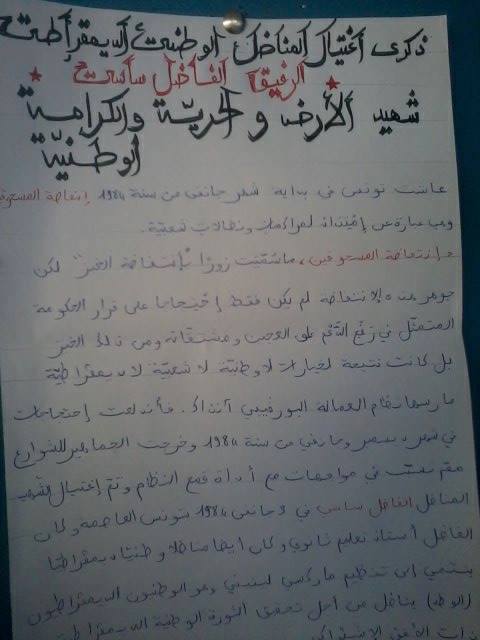 ذكرى اغتيال المناضل الوطني الديمقراطي
الرفيق الفاضل ساسي
شهيد الأرض و الحرية والكرامة
الوطنية
عاشت تونس في بداية شهر جانفي من سنة 1984 إنتفاضة المسحوقين
وهي عبارة عن إمتداد لمراكمات ونضالات شعبية.
إنتفاضة المسحوقين، ما سميت زورا "بإنتفاضة الخبز" لكن
جوهر هذه الإنتفاضة لم يكن فقط إحتجاجا على قرار الحكومة
المتمثل في رفع الدعم على العجين ومشتقاته ومن ذلك الخبز
بل كانت نتيجة لخيارات لاوطنية لا شعبية لا ديمقراطية
مارسها نظام العمالة البورقيبي آنذاك. فأندلعت إحتجاجات
في شهر ديسمبر وجانفي من سنة 1984 وخرجت الجماهير للشوارع
في مواجهات مع أداة قمع النظام وتم إغتيال الشهيد
المناضل الفاضل ساسي في 3 جانفي 1984 بتونس العاصمة وكان
الفاضل أستاذ تعليم ثانوي وكان أيضا مناضلا وطنيا ديمقراطيا
ينتمي إلى تنظيم ماركسي لينيني وهو الوطنيون الديمقراطيون
(الوطد) يناضل من أجل تحقيق الثورة الوطنية الديمقراطية